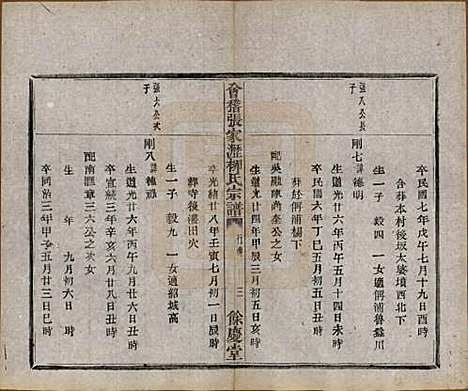 卒民國七年戊午七月十九日酉時
合葬本村後坂太婆墳西北下
張八公長子
剛七 諱德明
生一子 毅四 一女適柯浦魯鑫川
生道光廿六年丙午五月十四日未時
卒民國六年丁巳
葬於柯浦楊下
配吳融陳尚奎公之女
生道光廿四年甲辰三月初五日亥時
會稽張家瀝柳氏宗譜
三
餘慶堂
卒光緒廿八年壬寅七月初一日
驛寺後漊田穴
生一子 毅九 一女適紹城高
張六公次子
剛八 諱德
生道光廿六年丙午九月廿七日丑時
卒宣統三年辛亥六月廿八日丑時
配南匯章三六公之次女
生 年 九月初六日 時
卒同治三年甲子五月廿三日巳時